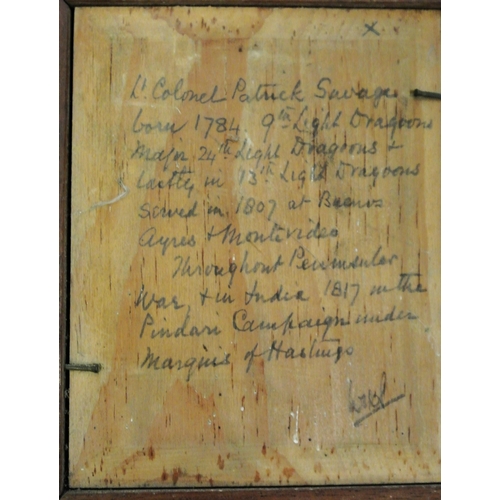 x
Lt Colonel Patrick Savage
born 1784 9th Light Dragoons
Major 24th Light Dragoons &
lastly in 13th Light Dragoons
Served in 1807 at Buenos
Ayres & Montevideo
Throughout Peninsular
War, & in India 1817 in the
Pindari Campaign under
Marquis of Hastings